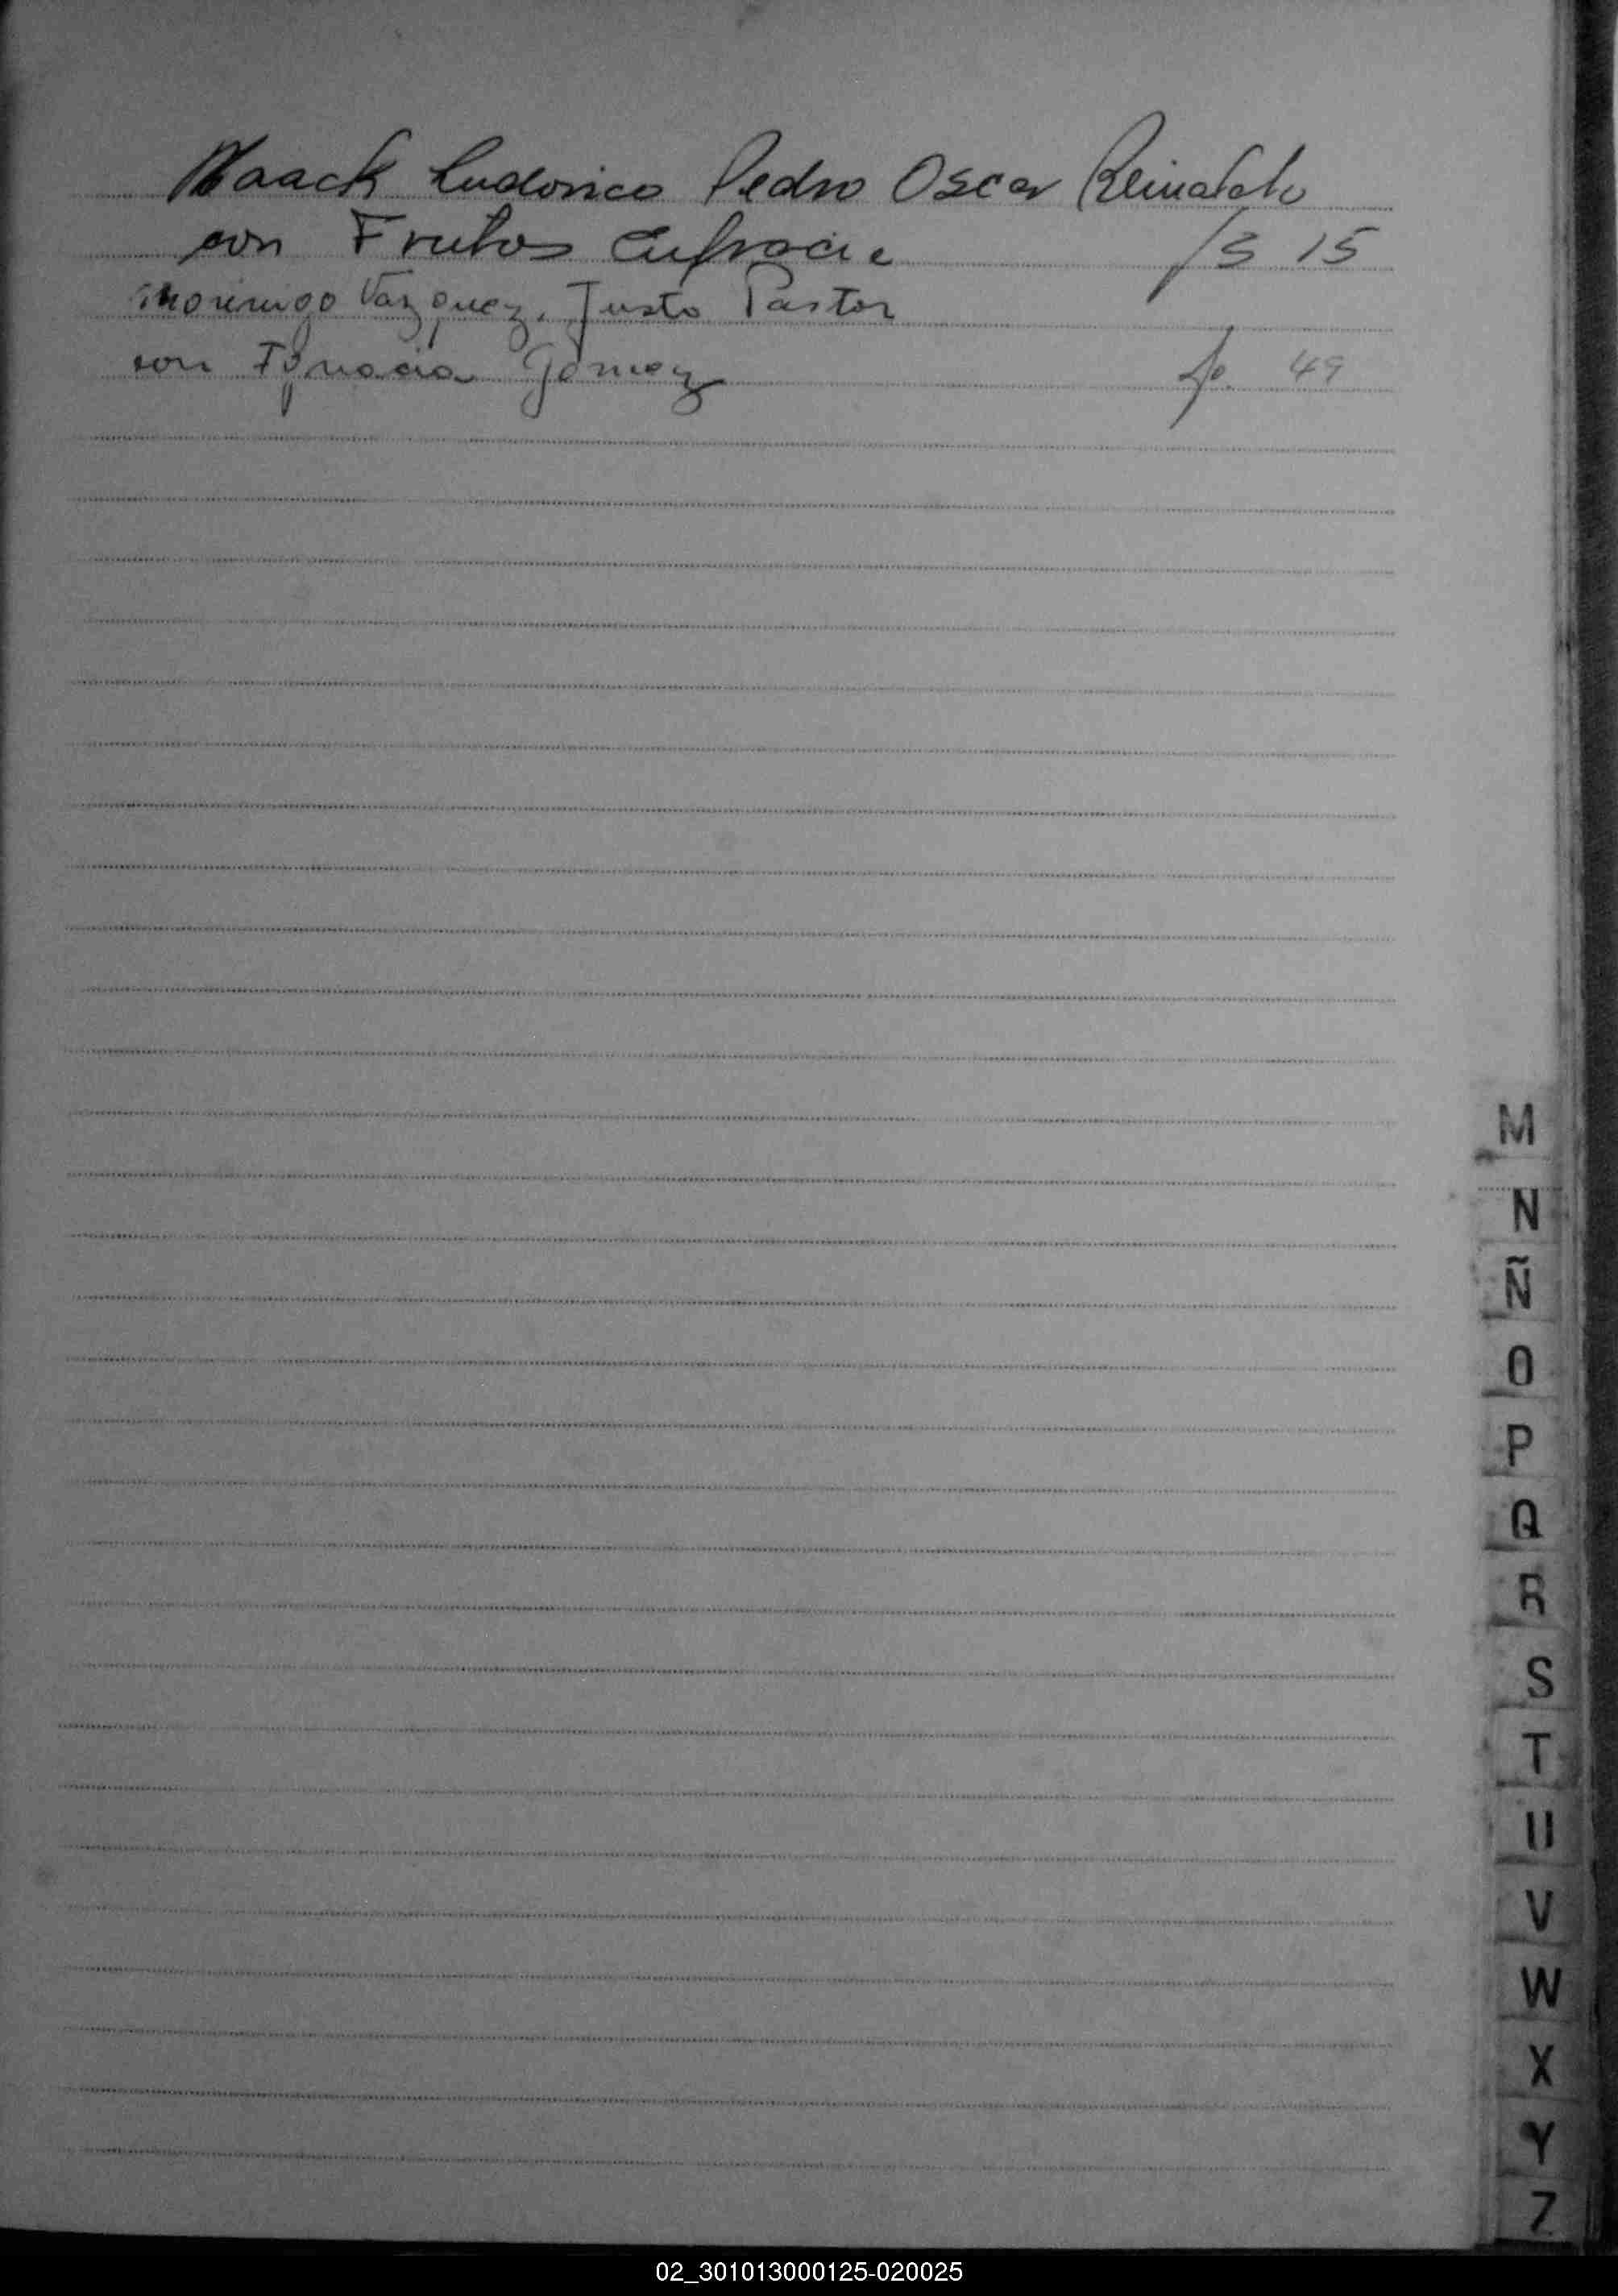 Maack Ludovico Pedro Oscar Reinaldo
con Frutos Eufracie
fs 15
Morinigo Vazquez, Justo Pastor
con Ignacia Gómez
fo. 49
M
N
Ñ
O
P
Q
R
S
T
U
V
W
X
Y
Z
02_301013000125-020025